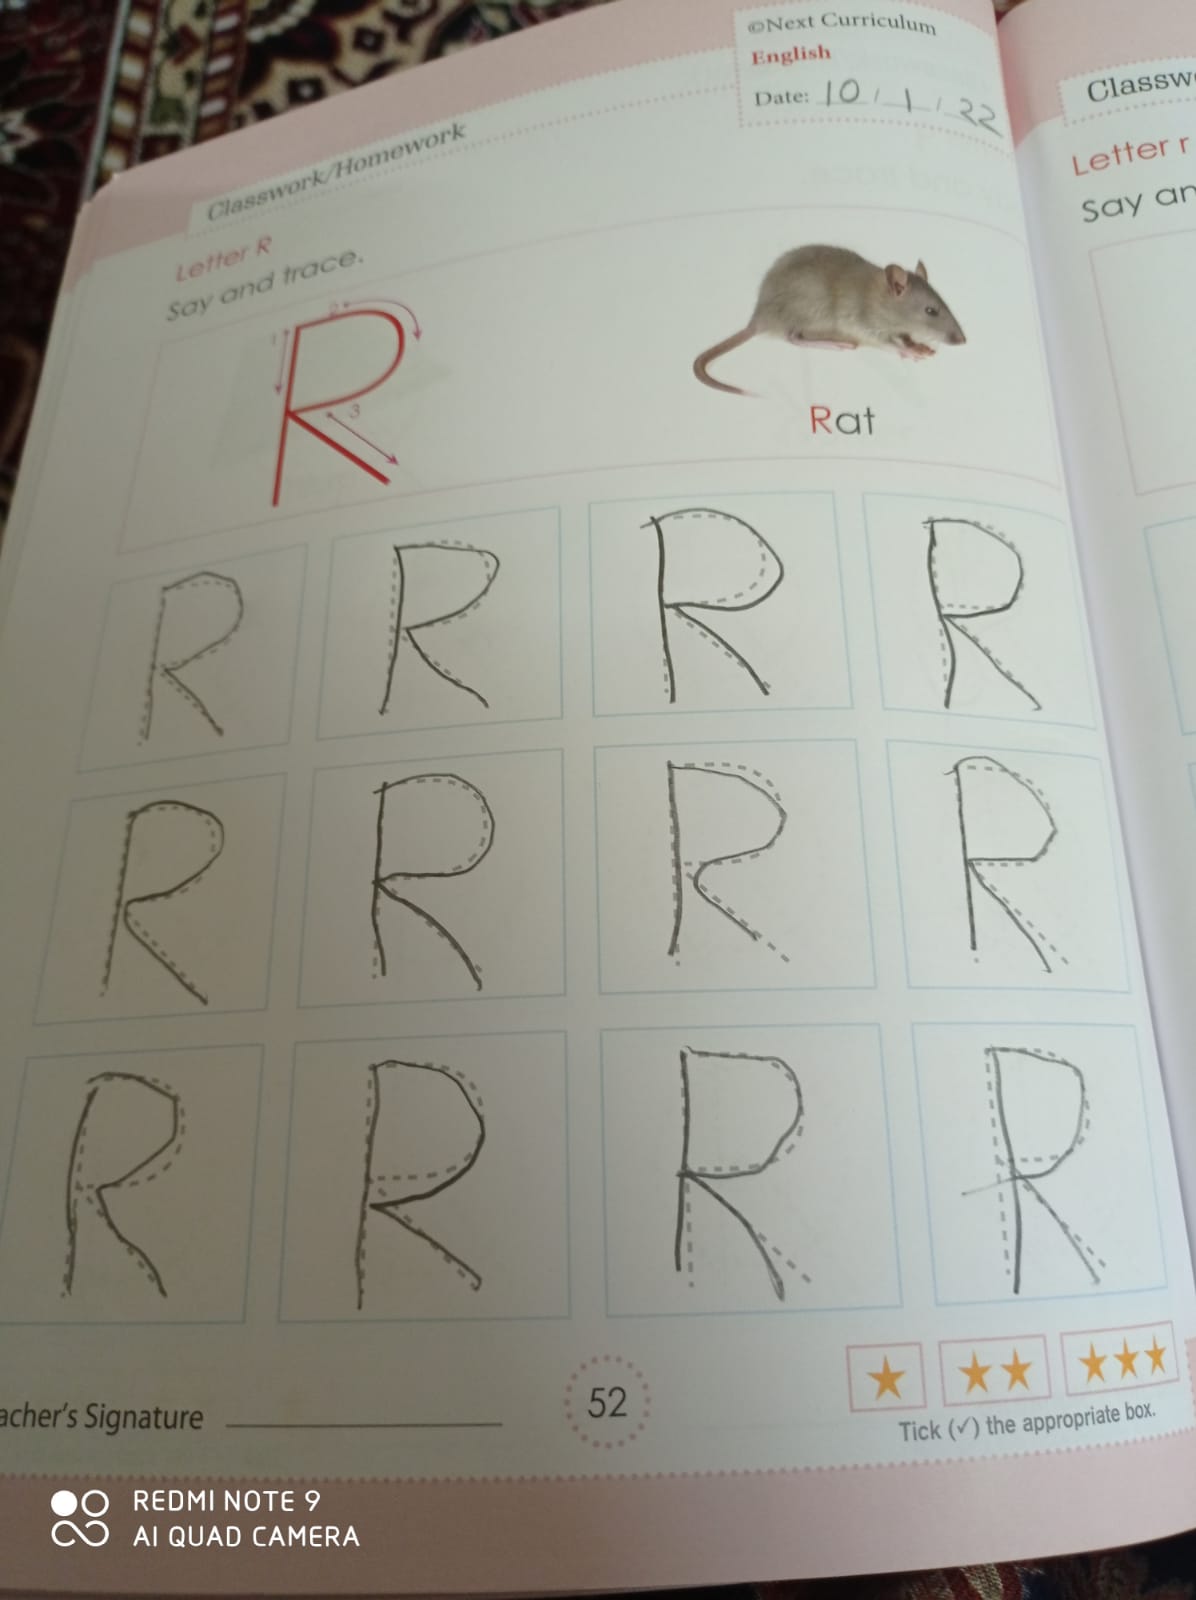 ©Next Curriculum
English
Date: 10 / 1 / 22
Classwork/Homework
Letter R
Say and trace.
1 2 3
R
Rat
R R R R
R R R R
R R R R
acher's Signature
52
Tick (✓) the appropriate box.
Classw
Letter r
Say an
REDMI NOTE 9
AI QUAD CAMERA